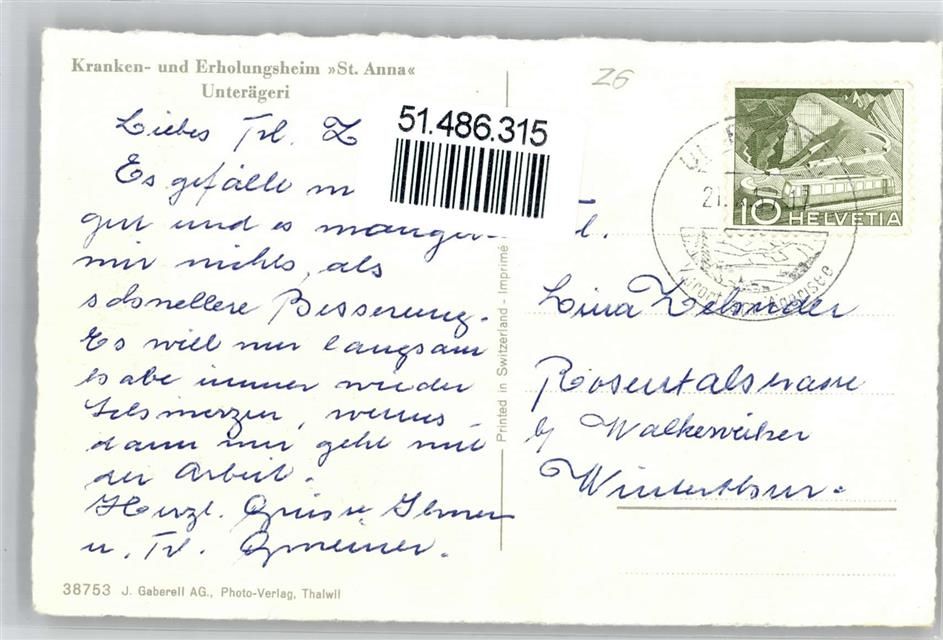 Kranken- und Erholungsheim »St. Anna«
Unterägeri
Z6
51.486.315
Liebes Frl. Z
Es gefällt m
gut und es mangelt
mir nichts, als
schnellere Besserung.
Es will nur langsam
habe immer wieder
Schmerzen, wenns
dann nur geht mit
der Arbeit.
Herzl. Grüsse Ihnen
u. Frl. Gmeiner.
Printed in Switzerland - Imprimé
10 HELVETIA
21.
17
Ägerisee
l.
Lina Zehnder
Rosentalstrasse
b/ Walkeweiher
Winterthur.
38753 J. Gaberell AG., Photo-Verlag, Thalwil